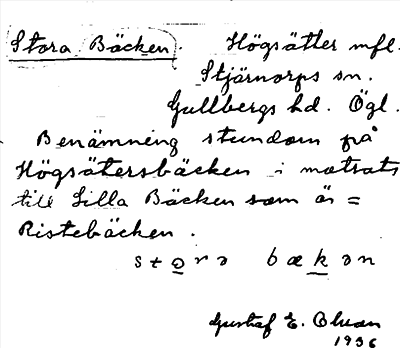 Stora Bäcken. Högsätter mfl.
Stjärnorps sn.
Gullbergs hd. Ögl.
Benämning stundom på
Högsätersbäcken i motsats
till Lilla Bäcken som är =
Ristebäcken.
stora bækən
Gustaf E.
1936